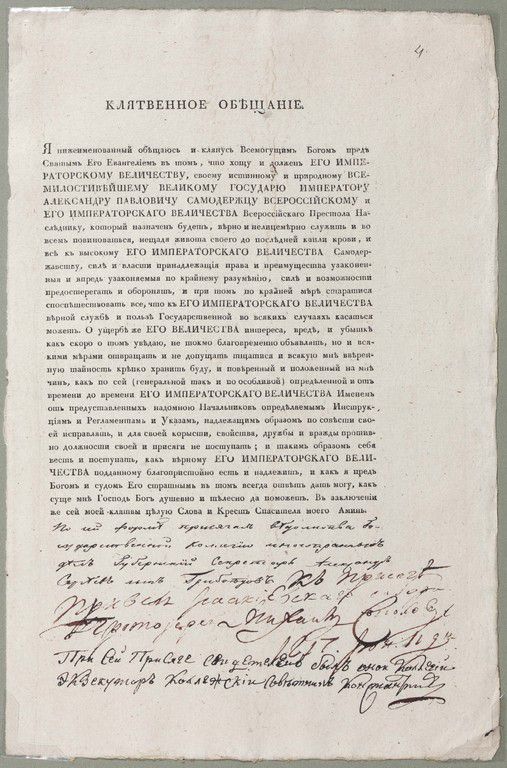 4
КЛЯТВЕННОЕ ОБѢЩАНІЕ.
Я нижеименованный обѣщаюсь и клянусь Всемогущимъ Богомъ предъ
Святымъ Его Евангеліемъ въ томъ, что хощу и долженъ ЕГО ИМПЕ-
РАТОРСКОМУ ВЕЛИЧЕСТВУ, своему истинному и природному ВСЕ-
МИЛОСТИВѢЙШЕМУ ВЕЛИКОМУ ГОСУДАРЮ ИМПЕРАТОРУ
АЛЕКСАНДРУ ПАВЛОВИЧУ САМОДЕРЖЦУ ВСЕРОССІЙСКОМУ и
ЕГО ИМПЕРАТОРСКАГО ВЕЛИЧЕСТВА Всероссійскаго Престола На-
слѣднику, который назначенъ будетъ, вѣрно и нелицемѣрно служить и во
всемъ повиноваться, нещадя живота своего до послѣдней капли крови, и
всѣ къ высокому ЕГО ИМПЕРАТОРСКАГО ВЕЛИЧЕСТВА Самодер-
жавству, силѣ и власти принадлежащія права и преимущества узаконен-
ныя и впредь узаконяемыя по крайнему разумѣнію, силѣ и возможности
предостерегать и оборонять, и при томъ по крайней мѣрѣ старатися
споспѣшествовать все, что къ ЕГО ИМПЕРАТОРСКАГО ВЕЛИЧЕСТВА
вѣрной службѣ и пользѣ Государственной во всякихъ случаяхъ касаться
можетъ. О ущербѣ же ЕГО ВЕЛИЧЕСТВА интереса, вредѣ, и убыткѣ
какъ скоро о томъ увѣдаю, не токмо благовременно объявлять, но и вся-
кими мѣрами отвращать и не допущать тщатися и всякую мнѣ ввѣрен-
ную тайность крѣпко хранить буду, и повѣренный и положенный на мнѣ
чинъ, какъ по сей (генеральной такъ и по особливой) опредѣленной и отъ
времени до времени ЕГО ИМПЕРАТОРСКАГО ВЕЛИЧЕСТВА Именемъ
отъ предуставленныхъ надомною Начальниковъ опредѣляемымъ Инструк-
ціямъ и Регламентамъ и Указамъ, надлежащимъ образомъ по совѣсти сво-
ей исправлять, и для своей корысти, свойства, дружбы и вражды против-
но должности своей и присяги не поступать; и такимъ образомъ себя
весть и поступать, какъ вѣрному ЕГО ИМПЕРАТОРСКАГО ВЕЛИ-
ЧЕСТВА подданному благопристойно есть и надлежитъ, и какъ я предъ
Богомъ и судомъ Его страшнымъ въ томъ всегда отвѣтъ дать могу, какъ
суще мнѣ Господь Богъ душевно и тѣлесно да поможетъ. Въ заключеніи
же сей моей клятвы цѣлую Слова и Крестъ Спасителя моего Аминь.
По сей формѣ присягалъ вѣдомства Го-
сударственной коллегіи иностранныхъ
дѣлъ Губернскій Секретарь Александръ
Сергѣевъ сынъ Грибоѣдовъ. Къ присягѣ
Привелъ Исаакіевскаго собора
Протоіерей Михаилъ
При сей Присягѣ свидѣтелемъ былъ оной Коллегіи
Экзекуторъ Коллежскій Совѣтникъ Константиновъ